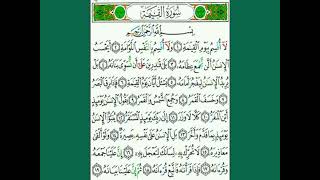 سُورَةُ الْقِيَٰمَةِ
بِسْمِ اللَّهِ الرَّحْمَٰنِ الرَّحِيمِ
لَا أُقْسِمُ بِيَوْمِ الْقِيَٰمَةِ ١ وَلَا أُقْسِمُ بِالنَّفْسِ اللَّوَّامَةِ ٢ أَيَحْسَبُ
الْإِنسَٰنُ أَلَّن نَّجْمَعَ عِظَامَهُ ٣ بَلَىٰ قَٰدِرِينَ عَلَىٰ أَن نُّسَوِّيَ بَنَانَهُ ٤ بَلْ
يُرِيدُ الْإِنسَٰنُ لِيَفْجُرَ أَمَامَهُ ٥ يَسْـَٔلُ أَيَّانَ يَوْمُ الْقِيَٰمَةِ ٦ فَإِذَا بَرِقَ الْبَصَرُ
٧ وَخَسَفَ الْقَمَرُ ٨ وَجُمِعَ الشَّمْسُ وَالْقَمَرُ ٩ يَقُولُ الْإِنسَٰنُ يَوْمَئِذٍ
أَيْنَ الْمَفَرُّ ١٠ كَلَّا لَا وَزَرَ ١١ إِلَىٰ رَبِّكَ يَوْمَئِذٍ الْمُسْتَقَرُّ ١٢ يُنَبَّؤُا الْإِنسَٰنُ
يَوْمَئِذٍ بِمَا قَدَّمَ وَأَخَّرَ ١٣ بَلِ الْإِنسَٰنُ عَلَىٰ نَفْسِهِ بَصِيرَةٌ ١٤ وَلَوْ أَلْقَىٰ
مَعَاذِيرَهُ ١٥ لَا تُحَرِّكْ بِهِ لِسَانَكَ لِتَعْجَلَ بِهِ ١٦ إِنَّ عَلَيْنَا جَمْعَهُ
وَقُرْءَانَهُ ١٧ فَإِذَا قَرَأْنَٰهُ فَاتَّبِعْ قُرْءَانَهُ ١٨ ثُمَّ إِنَّ عَلَيْنَا بَيَانَهُ ١٩